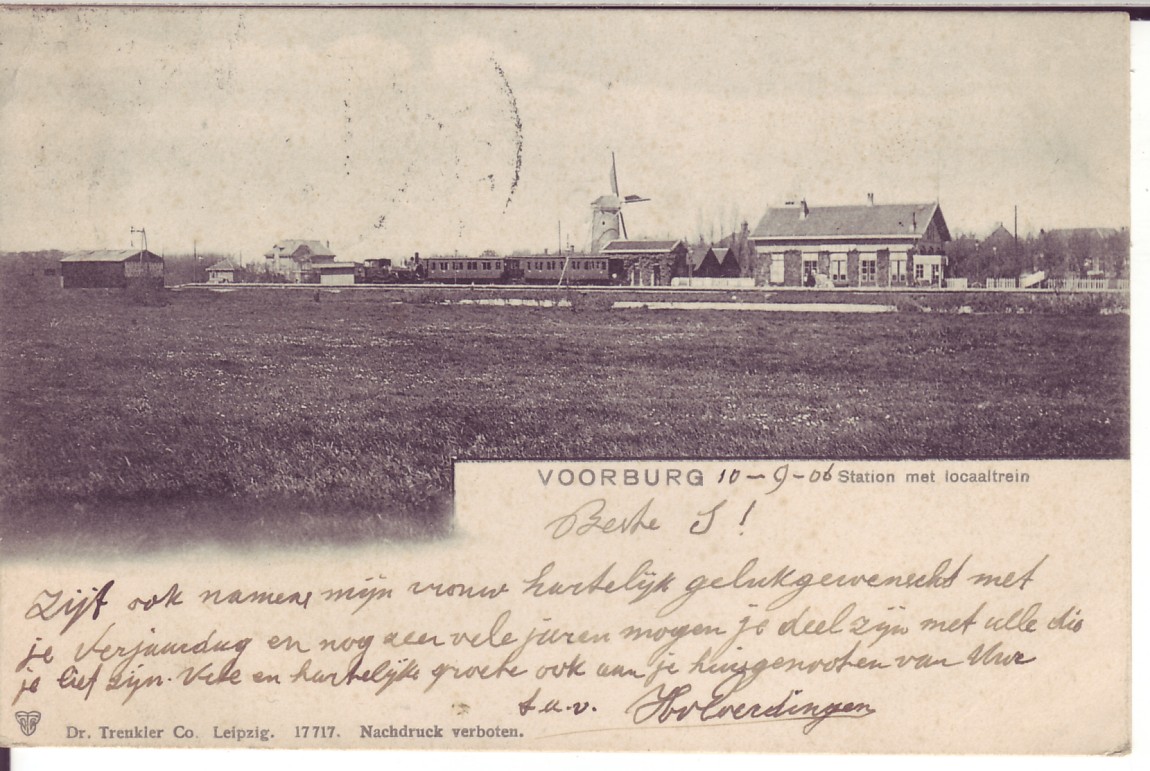 VOORBURG 10-9-06 Station met locaaltrein
Beste S!
Zijt ook namens mijn vrouw hartelijk gelukgewenscht met
je verjaardag en nog zeer vele jaren mogen je deel zijn met alle die
je lief zijn. Vele en hartelijke groete ook aan je huisgenooten van Uwe
t.a.v.
Dr. Trenkler Co. Leipzig. 17717. Nachdruck verboten.